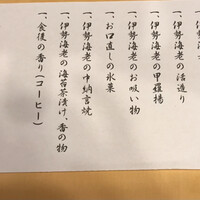 一、伊勢海老の活造り
一、伊勢海老の甲羅揚
一、伊勢海老のお吸い物
一、お口直しの氷菓
一、伊勢海老の巾納言焼
一、伊勢海老の海苔茶漬け、香の物
一、食後の香り(コーヒー)